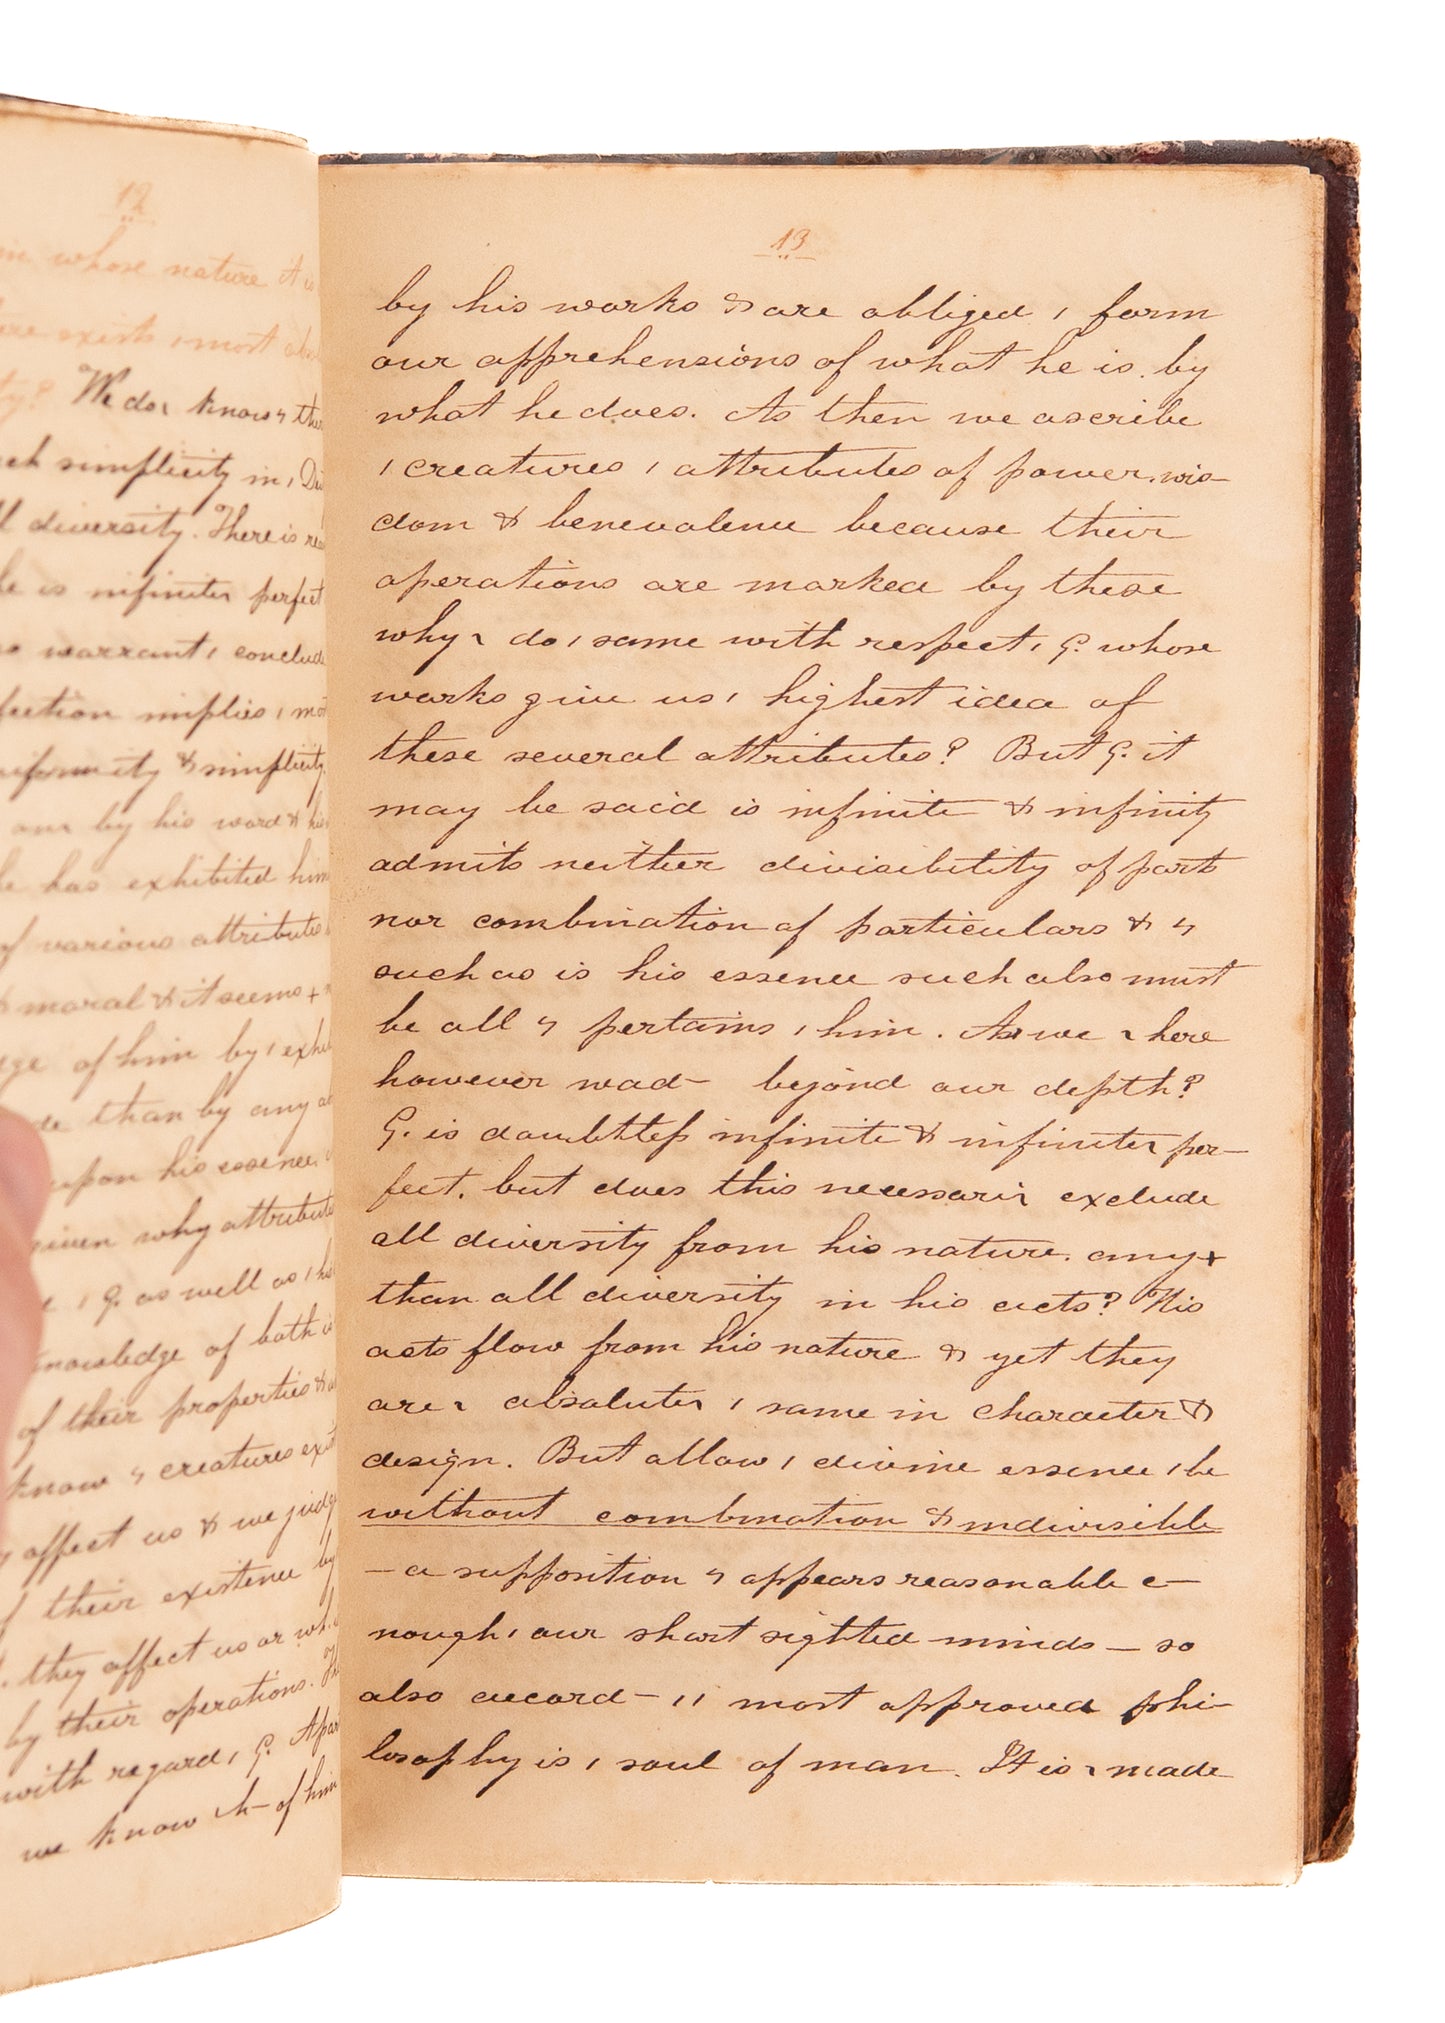 12
in whose nature it is
are exists , most
? We do ~ know ɥ the
simplicity in ,
diversity. There is
he is infinite~ perfect
warrant , conclude
fection implies ,
& simplicity.
our by his word &
he has exhibited him
of various attributes
moral & it seems +
of him by ,
than by any
upon his essence.
given why attribute
, G. as well as ,
knowledge of both
of their properties &
know ɥ creatures exist
ɥ affect us & we judge
their existence by
they affect us or
by their operations.
with regard , G. Apart
we know of him
13
by his works & are obliged , form
our apprehensions of what he is. by
what he does. As then we ascribe
, creatures , attributes of power, wis-
dom & benevolence because their
operations are marked by these
why ~ do , same with respect , G. whose
works give us , highest idea of
these several attributes? But G. it
may be said is infinite & infinity
admits neither divisibility of parts
nor combination of particulars & ɥ
such as is his essence such also must
be all ɥ pertains , him. Are we ~ here
however wad- beyond our depth?
G. is doubtless infinite & infinite~ per-
fect. but does this necessari~ exclude
all diversity from his nature. any +
than all diversity in his acts? His
acts flow from his nature & yet they
are ~ absolute~ , same in character &
design. But allow , divine essence , be
without combination & indivisible
— a supposition ɥ appears reasonable e-
nough , our short sighted minds — so
also accord- , , most approved phi-
losophy is , soul of man. It is ~ made